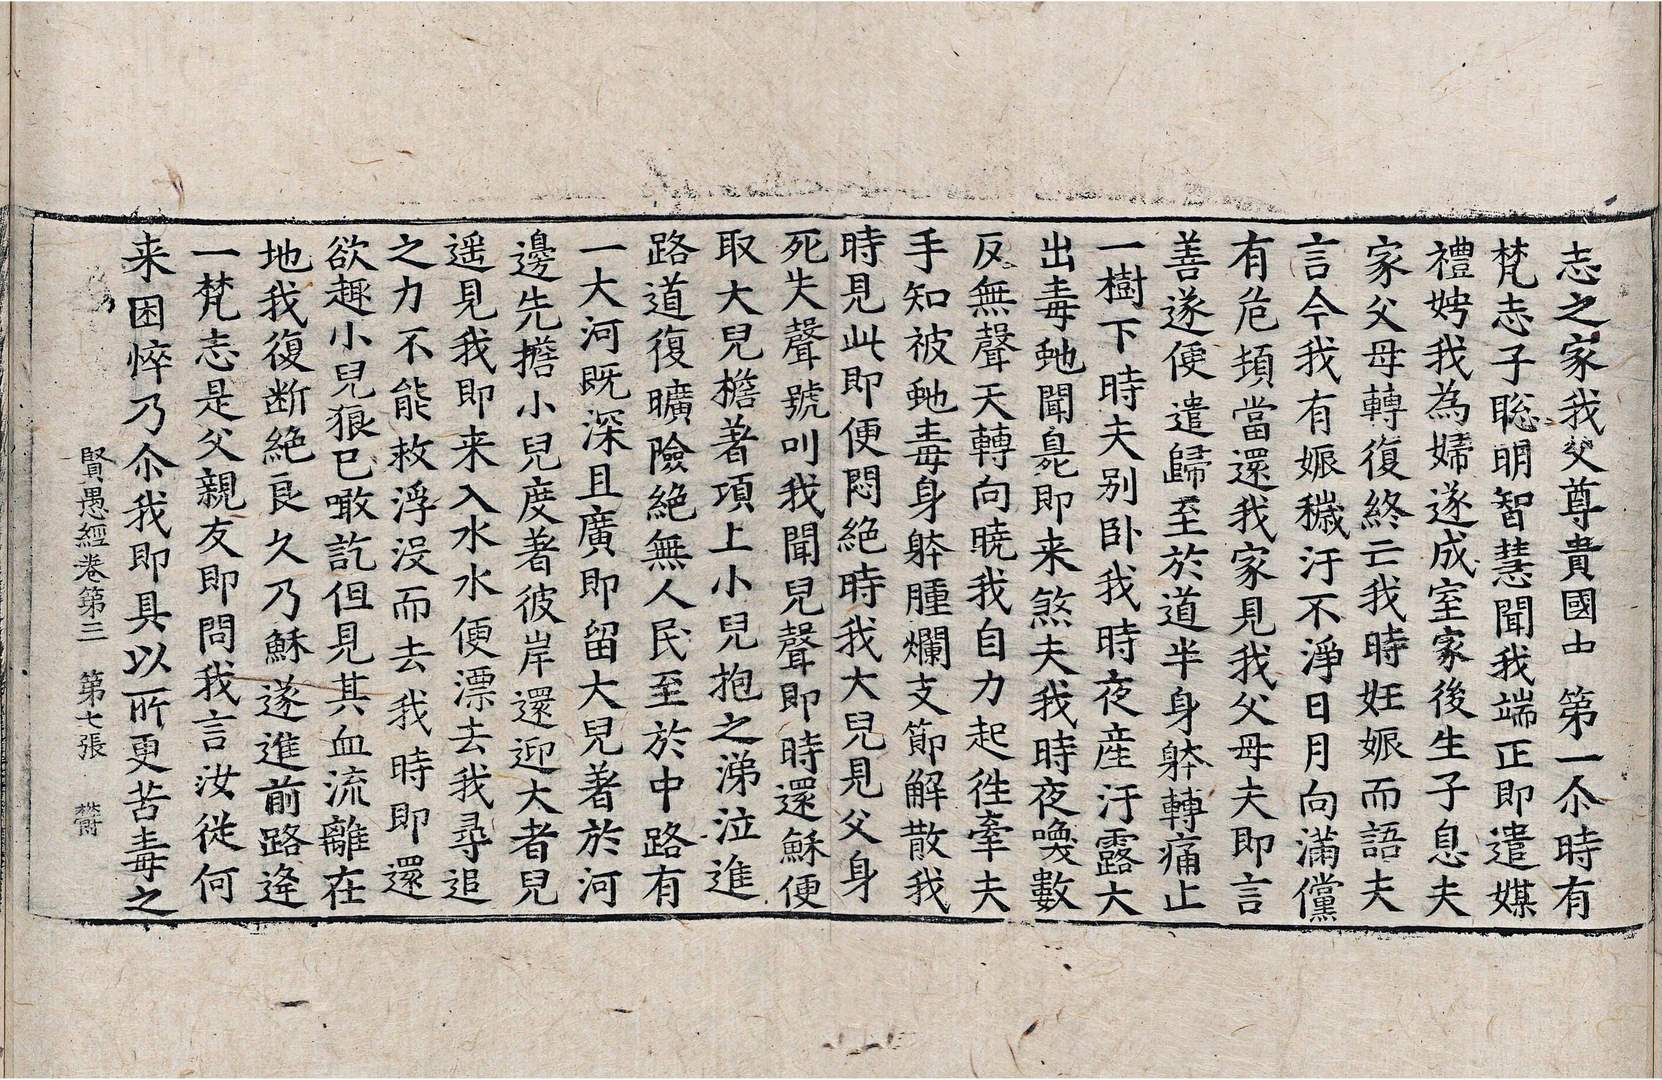 志之家我父尊貴國中第一尒時有
梵志子聡明智慧聞我端正即遣媒
禮娉我為婦遂成室家後生子息夫
家父母轉復終亡我時妊娠而語夫
言今我有娠穢汙不淨日月向滿儻
有危頓當還我家見我父母夫即言
善遂便遣歸至於道半身躰轉痛止
一樹下時夫別卧我時夜産汙露大
出毒虵聞臭即来煞夫我時夜喚數
反無聲天轉向曉我自力起徃牽夫
手知被虵毒身躰腫爛支節解散我
時見此即便悶絶時我大兒見父身
死失聲號叫我聞兒聲即時還穌便
取大兒擔著項上小兒抱之涕泣進
路道復曠險絶無人民至於中路有
一大河既深且廣即留大兒著於河
邊先擔小兒度著彼岸還迎大者兒
遥見我即来入水水便漂去我尋追
之力不能救浮没而去我時即還
欲趣小兒狼已噉訖但見其血流離在
地我復断絶良久乃穌遂進前路逄
一梵志是父親友即問我言汝従何
来困悴乃尒我即具以所更苦毒之
賢愚經卷第三　第七張　欝